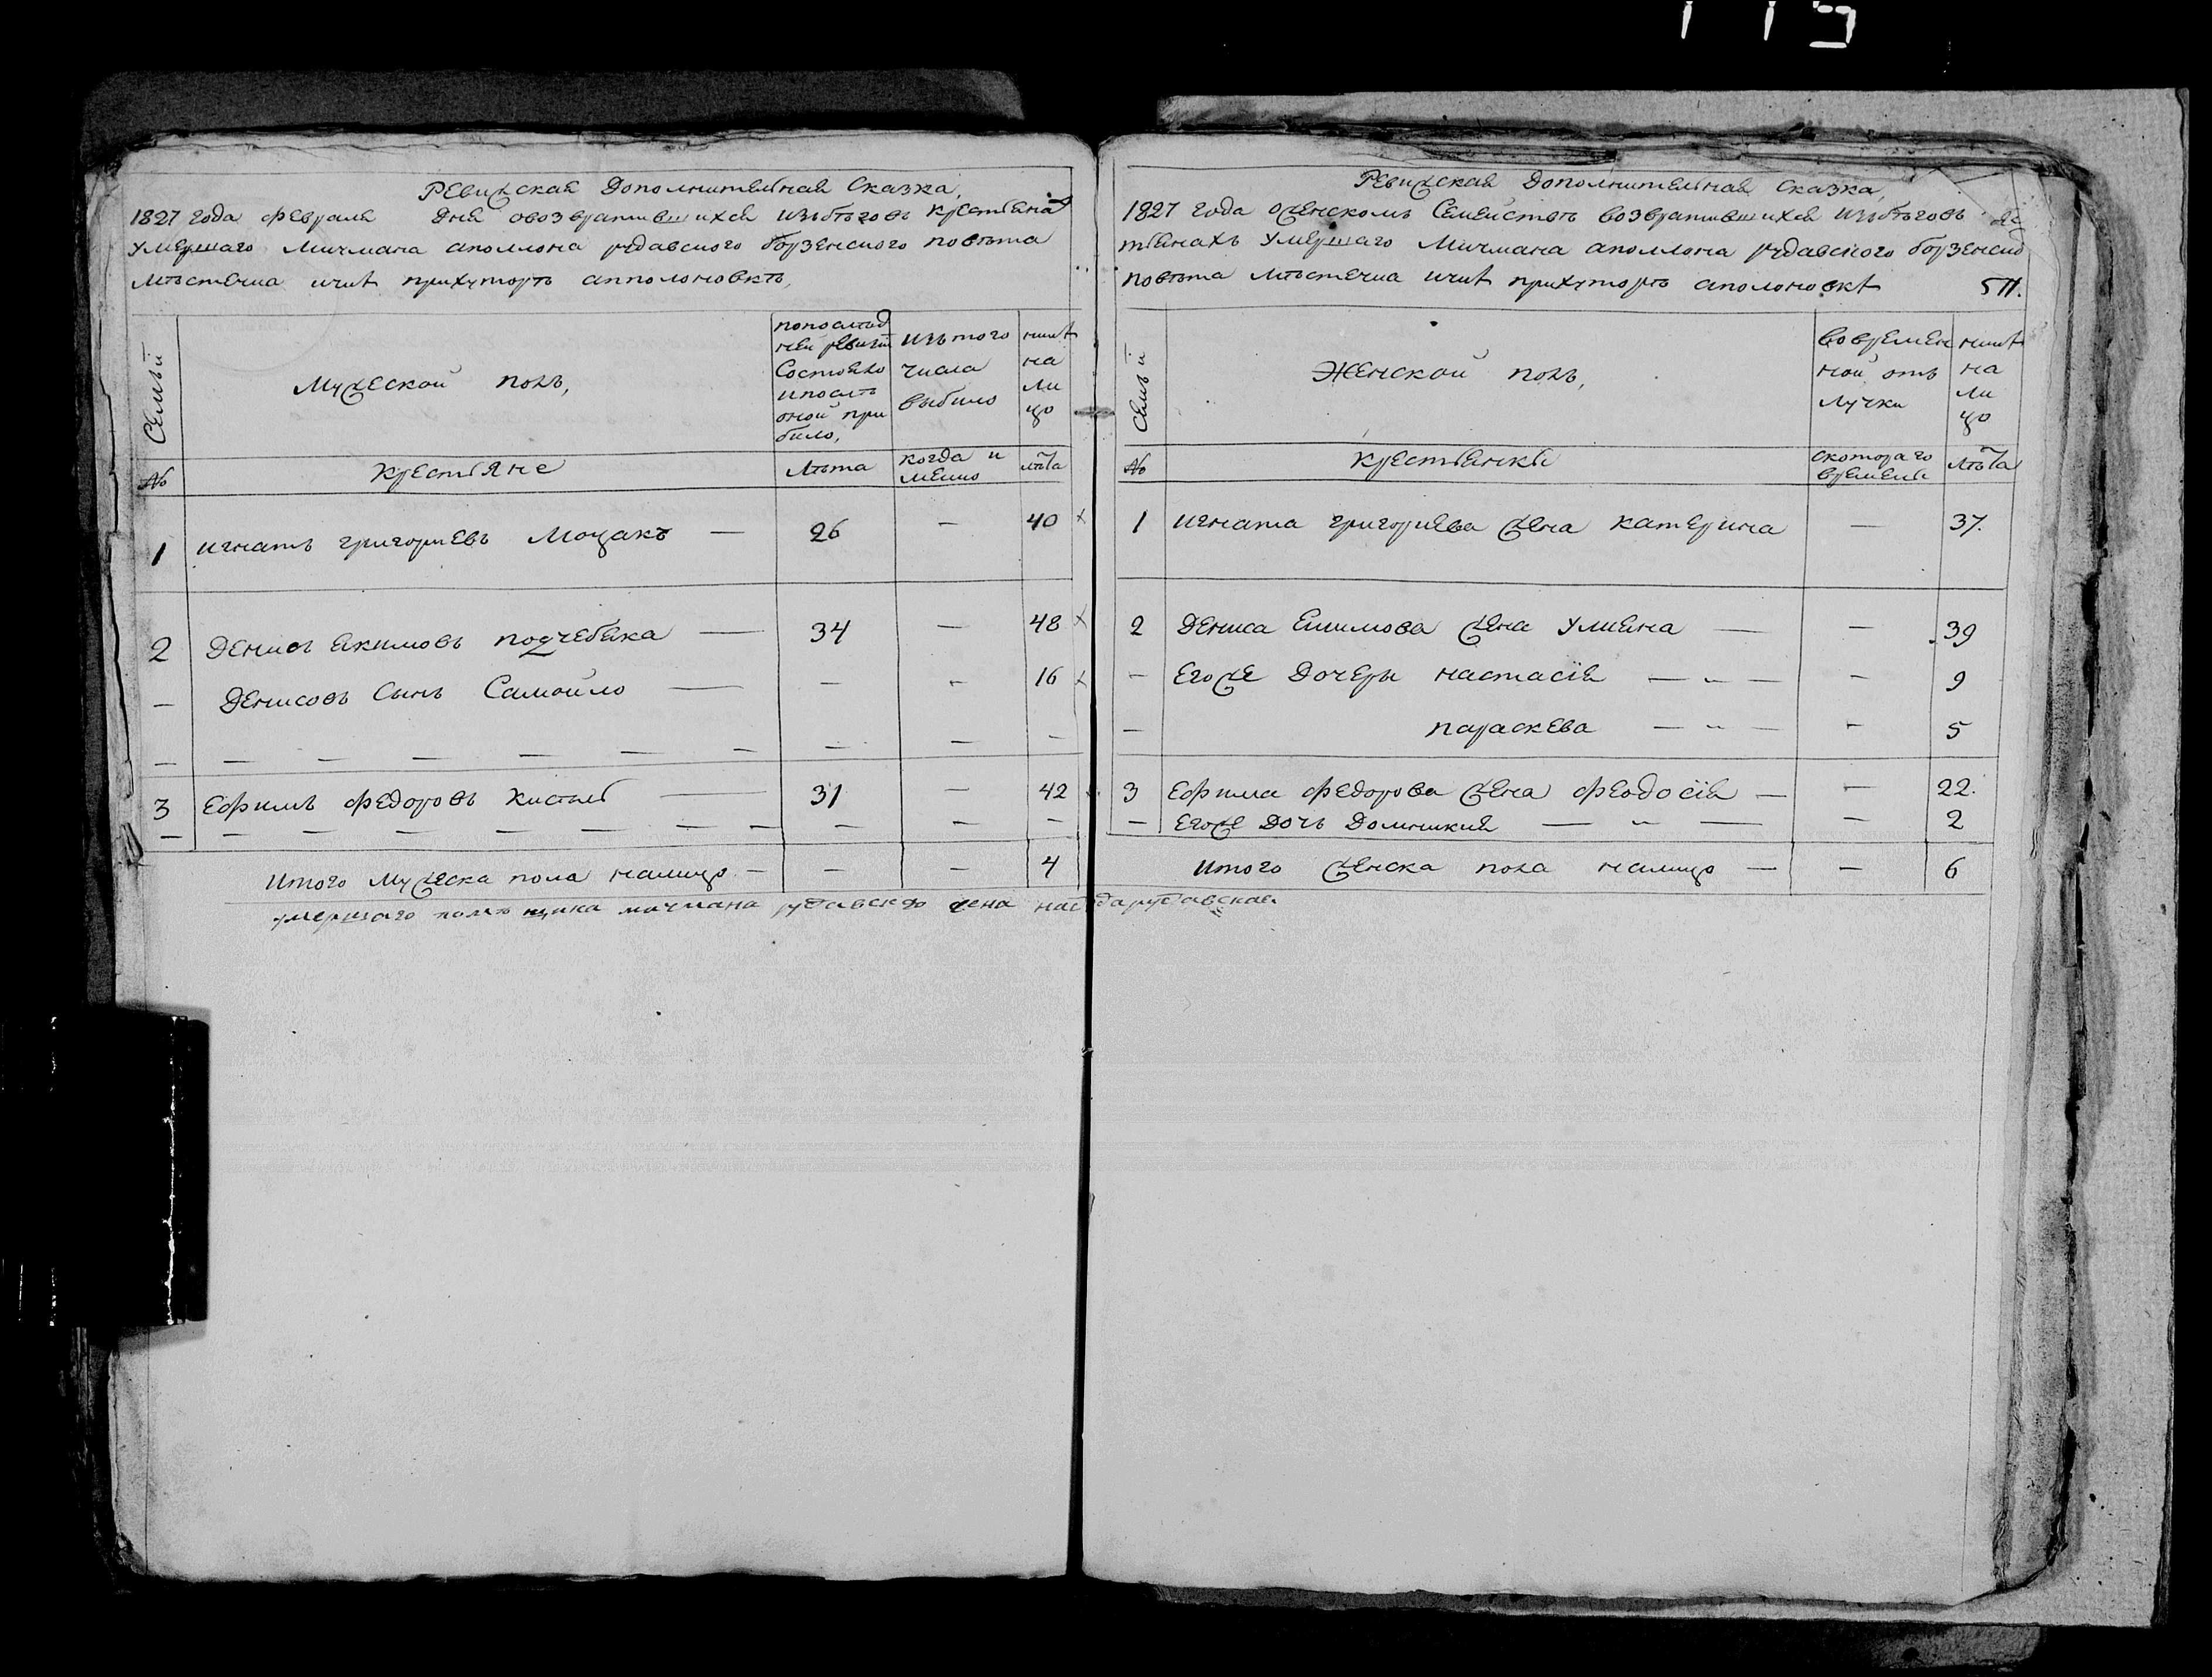 Ревижская Дополнителная Сказка,
1827 года февраля дня овозвратившихся изъбѣговъ крестьяна
Умершаго Мичмана аполлона рудавского борзенского повѣта
Мѣстечка ичнѣ прихуторѣ апполоновкѣ,
Семьи
Мужеской полъ,
попослѣд
ней ревизіи
Состояло
ипослѣ
оной при
било,
изътого
числа
выбило
нинѣ
на
ли
цо
№
крестьяне
лѣта
когда и
менно
лѣта
1 игнатъ григориевъ Моцакъ — 26 — 40
2 денисъ екимовъ подчебяка — 34 — 48
— денисовъ Сынъ Самойло — — - 16
— — — — — — — — — -
3 Ефимъ федоровъ — 31 — 42
— — — — — — — — — — — -
Итого мужеска пола налицо - — — 4
умершаго помѣщика мичмана рудавского жена рудавская
115
Ревижская Дополнителная Сказка,
1827 года оженскомъ Семействѣ возвратившихся изъбѣговъ
тьянахъ умершаго Мичмана аполлона рудавского борзенско
повѣта Мѣстечка ичнѣ прихуторѣ аполоновкѣ 511.
Семьи
Женской полъ,
вовремен
ной отъ
лучки
нинѣ
на
ли
цо
№
крестьянки
скотораго
времени
лѣта
1 игната григориева жена катерина — 37.
2 дениса екимова жена улияна — — 39
— егоже дочеры настасія — - — - 9
— параскева — - — - 5
3 Ефима федорова жена феодосія — — 22.
— егоже дочь домникия — - — — 2
Итого женска пола налицо — — 6